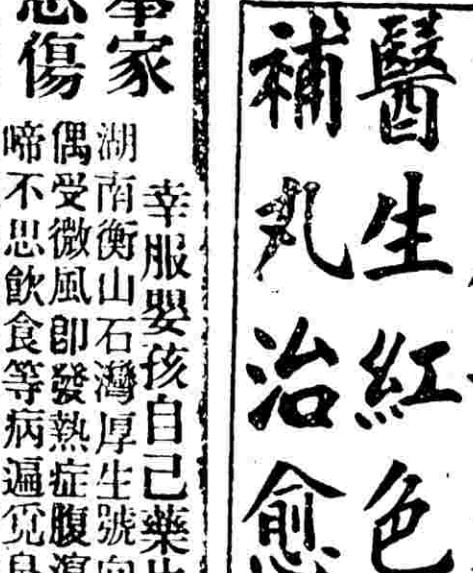 醫生紅色
補丸治愈
舉家
傷
幸服嬰孩自己藥
湖南衡山石灣厚生號向
偶受微風即發熱症腹瀉
啼不思飲食等病遍覓良